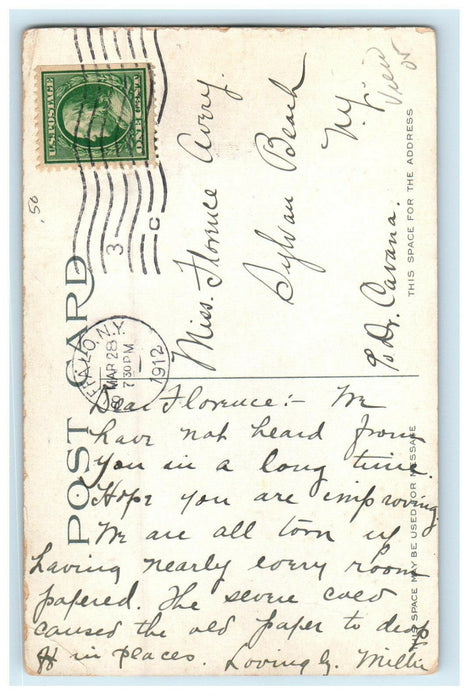 POST CARD
U.S. POSTAGE
ONE CENT
3
C
BUFFALO, N.Y.
MAR 28
7 30 PM
1912
.50
View
or
Miss. Florence Avery.
Sylvan Beach
N.Y.
℅ Dr. Cavana.
THIS SPACE FOR THE ADDRESS
THIS SPACE MAY BE USED FOR MESSAGE
Dear Florence:- We
have not heard from
you in a long time.
Hope you are improving.
We are all torn up
having nearly every room
papered. The severe cold
caused the old paper to drop
off in places. Lovingly. Millie